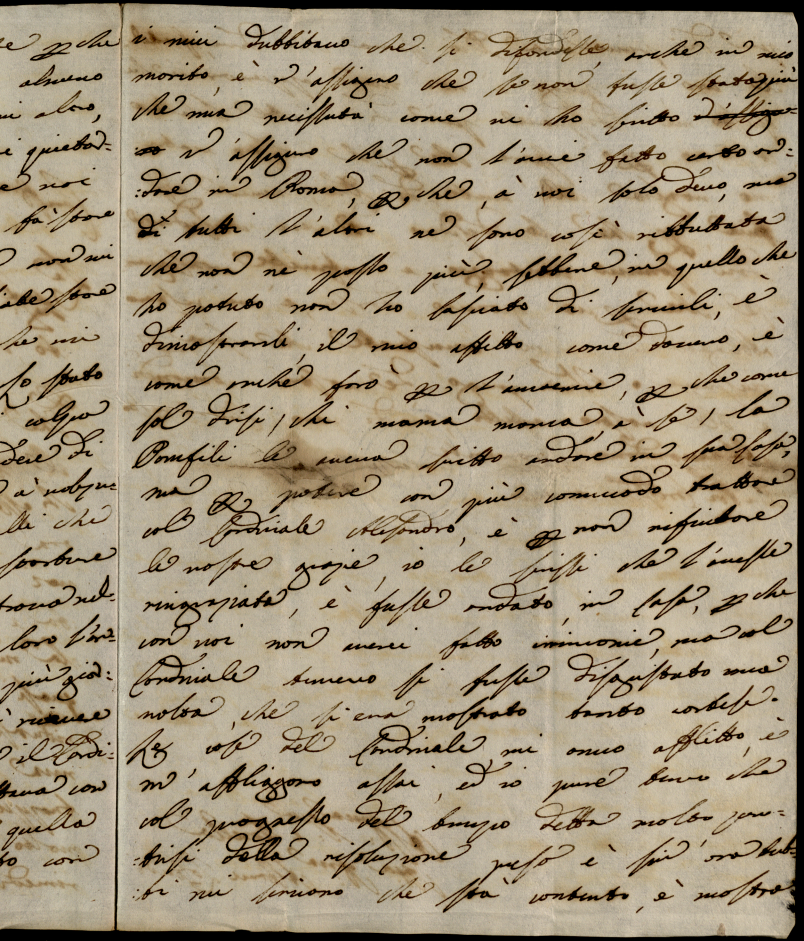 e p che
almeno
ui altro,
e noi
fà stare
non mi
che mi
lo stato
colpa
dere di
lli che
trova nel-
loro
più
riceve
il Cardi:
ttava con
quella
to con
i miei dubbitavo che si difondesse, anche in mio
marito, è v'assiguro che se non fusse stata più
che mia necissità come vi ho scritto d'assigu-
ro v'assiguro che non l'avrei fatto certo an-
:dare in Roma, p che, à voi solo devo, ma
di tutti l'altri ne sono così ributtata
che non nè posso più, sebbene, in quello che
ho potuto non ho lasciato di servirli, è
dimostrarli, il mio affetto come dovevo, è
come anche farò p l'avvenire, p che come
sol dirsi, chi manca manca, à se, la
Panfili le aveva scritto andare in sua Casa,
ma p potere con più commodo trattare
col Cardinale Alesandro, è p non rifiutare
le vostre grazie, io le scrissi che l'avesse
ringraziata, è fusse andato, in Casa, p che
con voi non averei fatto cirimonie, ma col
Cardinale temevo si fusse disgustato una
volta, che si era mostrato tanto cortese.
Le cose del Cardinale mi anno afflitto, è
m'affliggono assai, ed io pure temo che
col progresso del tempo detta molto pen-
:tirsi della risoluzione presa è sin' ora tut-
:ti mi scrivono che stà contento, è mostra